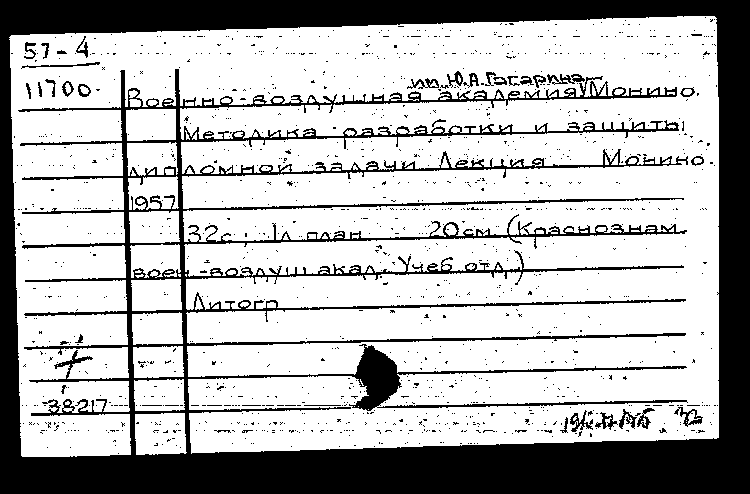 57-4
11700.
им. Ю.А. Гагарина
Военно-воздушная академия Монино.
Методика разработки и защиты
дипломной задачи Лекция. Монино.
1957
32с; 1л план 20см (Краснознам.
воен-воздуш акад. Учеб отд.)
Литогр
38217